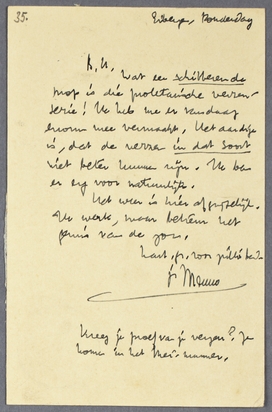 35.
Donderdag
Wat een schitterende
prop is die proletarische verzen-
serie! Ik heb me er vandaag
enorm mee vermaakt. Het aardige
is, dat de verzen in dat soort
niet beter kunnen zijn. Ik ben
er erg voor natuurlijk.
Het weer is hier afgrijselijk.
Ik werk, maar behoef het
gemis van de zon.
hart. gr. voor
je Menno
Kreeg je proef van je verzen? Ze
komen in het Mei-nummer.